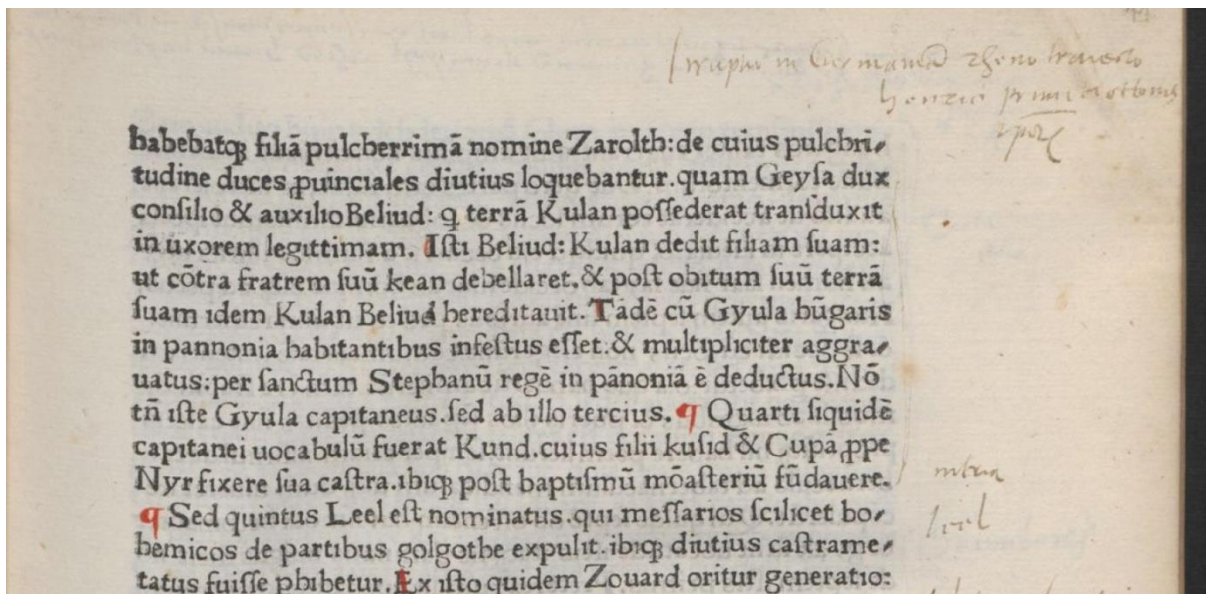 Irruptio in Germaniã rheno traiecto
henrici primi
habebatqȝ filiã pulcherrimã nomine Zarolth: de cuius pulchri⸗
tudine duces ꝓuinciales diutius loquebantur. quam Geyſa dux
conſilio & auxilio Beliud: ꝗ terrã Kulan poſſederat tranſduxit
in uxorem legittimam. Iſti Beliud: Kulan dedit filiam ſuam:
ut cõtra fratrem ſuũ kean debellaret. & poſt obitum ſuũ terrã
ſuam idem Kulan Beliud hereditauit. Tãdẽ cũ Gyula hũgaris
in pannonia habitantibus infeſtus eſſet: & multipliciter aggra⸗
uatus: per ſanctum Stephanũ regẽ in pãnoniã ẽ deductus. Nõ
tñ iſte Gyula capitaneus. ſed ab illo tercius. ¶ Quarti ſiquidẽ
capitanei uocabulũ fuerat Kund. cuius filii kuſid & Cupã ꝓpe
Nyr fixere ſua caſtra. ibiqȝ poſt baptiſmũ mõaſteriũ fũdauere.
¶ Sed quintus Leel eſt nominatus. qui meſſarios ſcilicet bo⸗
hemicos de partibus golgothe expulit. ibiqȝ diutius caſtrame⸗
tatus fuiſſe phibetur. Ex iſto quidem Zouard oritur generatio:
leel